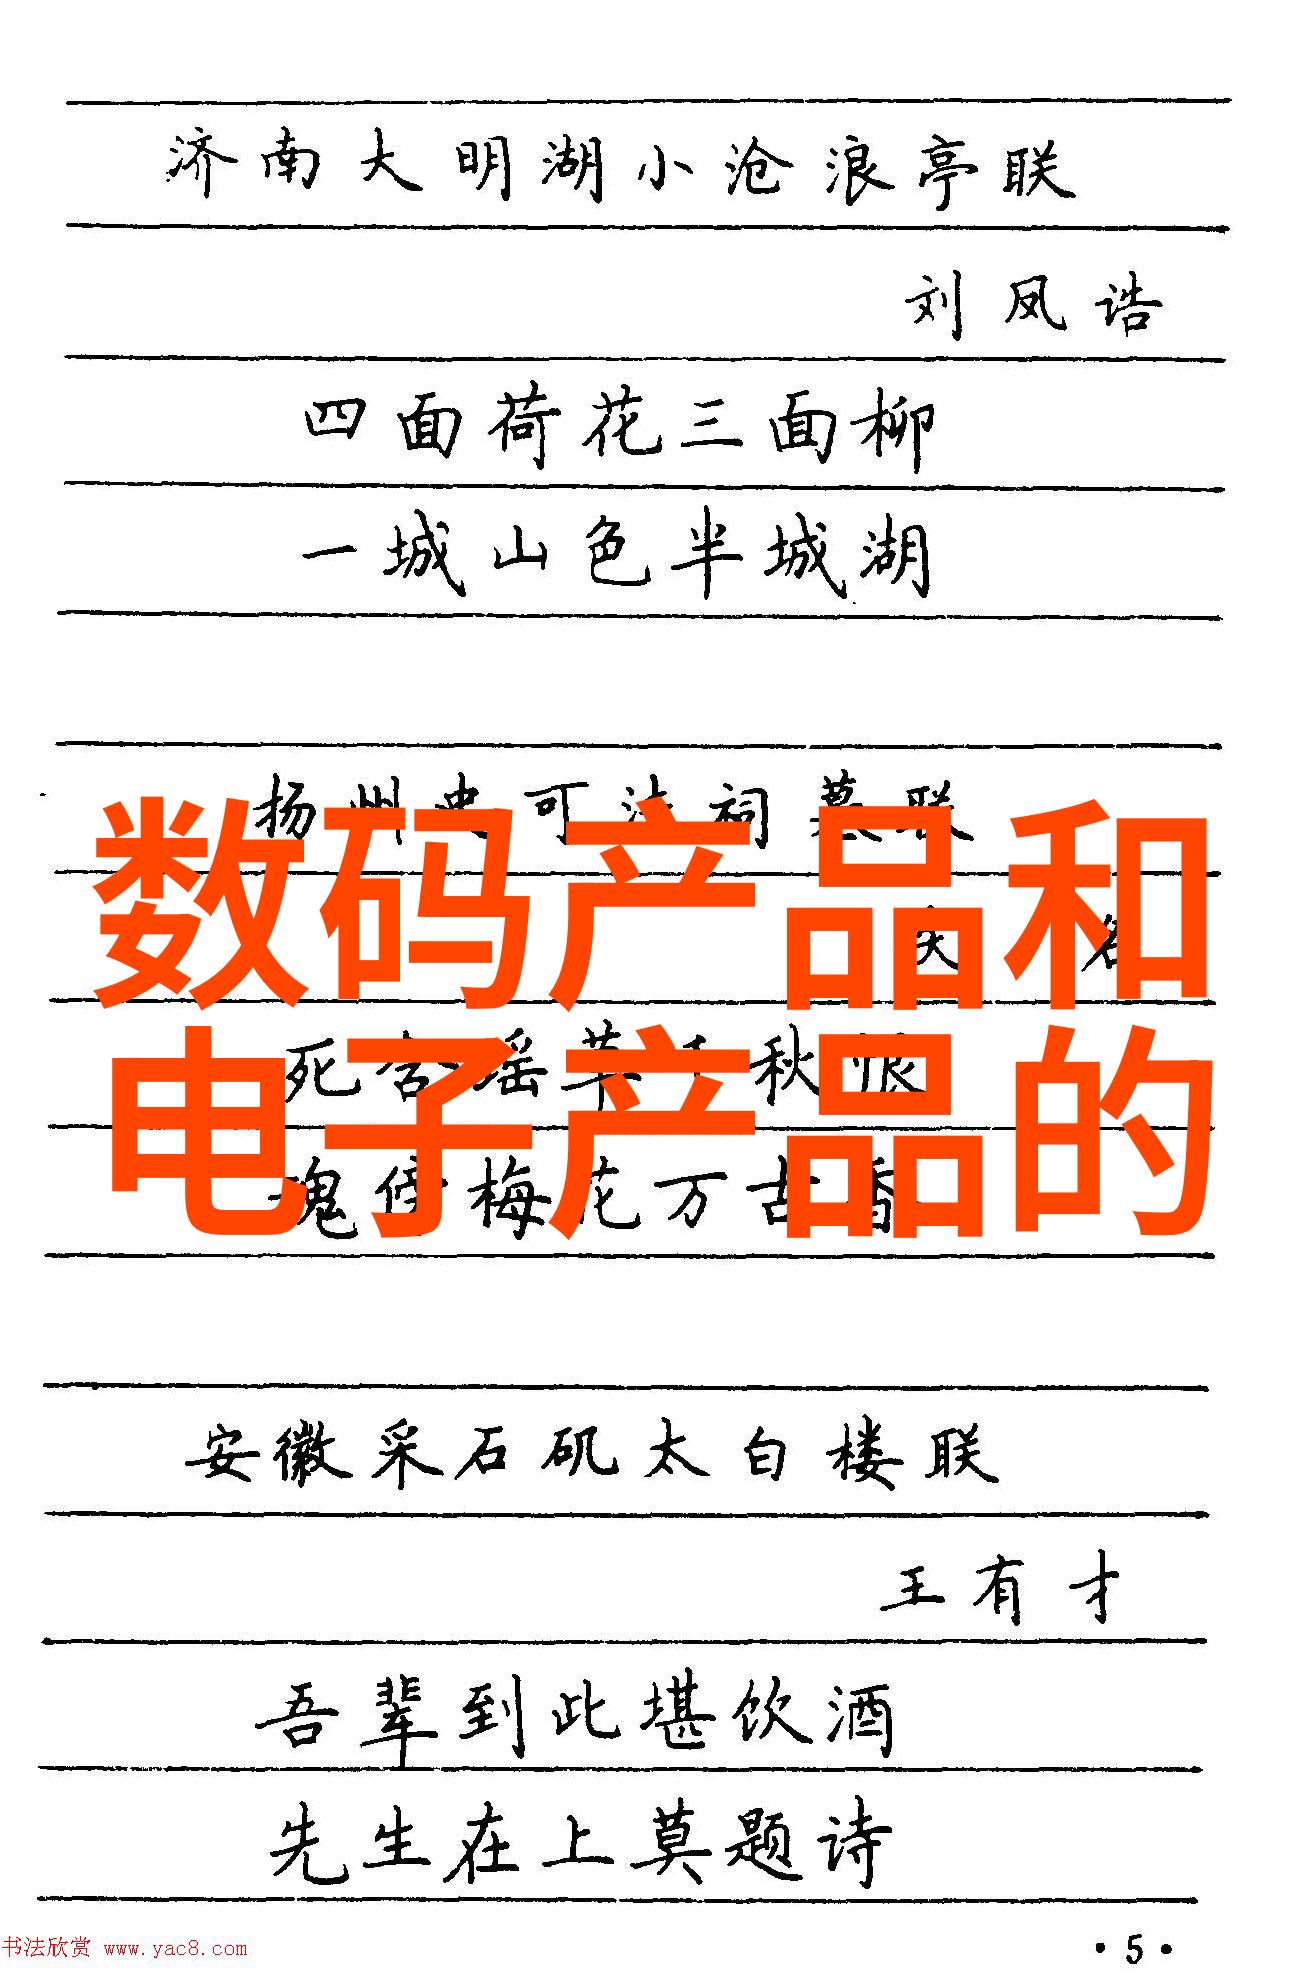 济南大明湖小沧浪亭联
刘凤诰
四面荷花三面柳
一城山色半城湖
扬州史可法祠墓联
数码产品和
名
死瑶草千秋恨
电子产品的
魂傍梅花万古香
安徽采石矶太白楼联
王有才
吾辈到此堪饮酒
先生在上莫题诗
书法欣赏 www.yac8.com
·5·